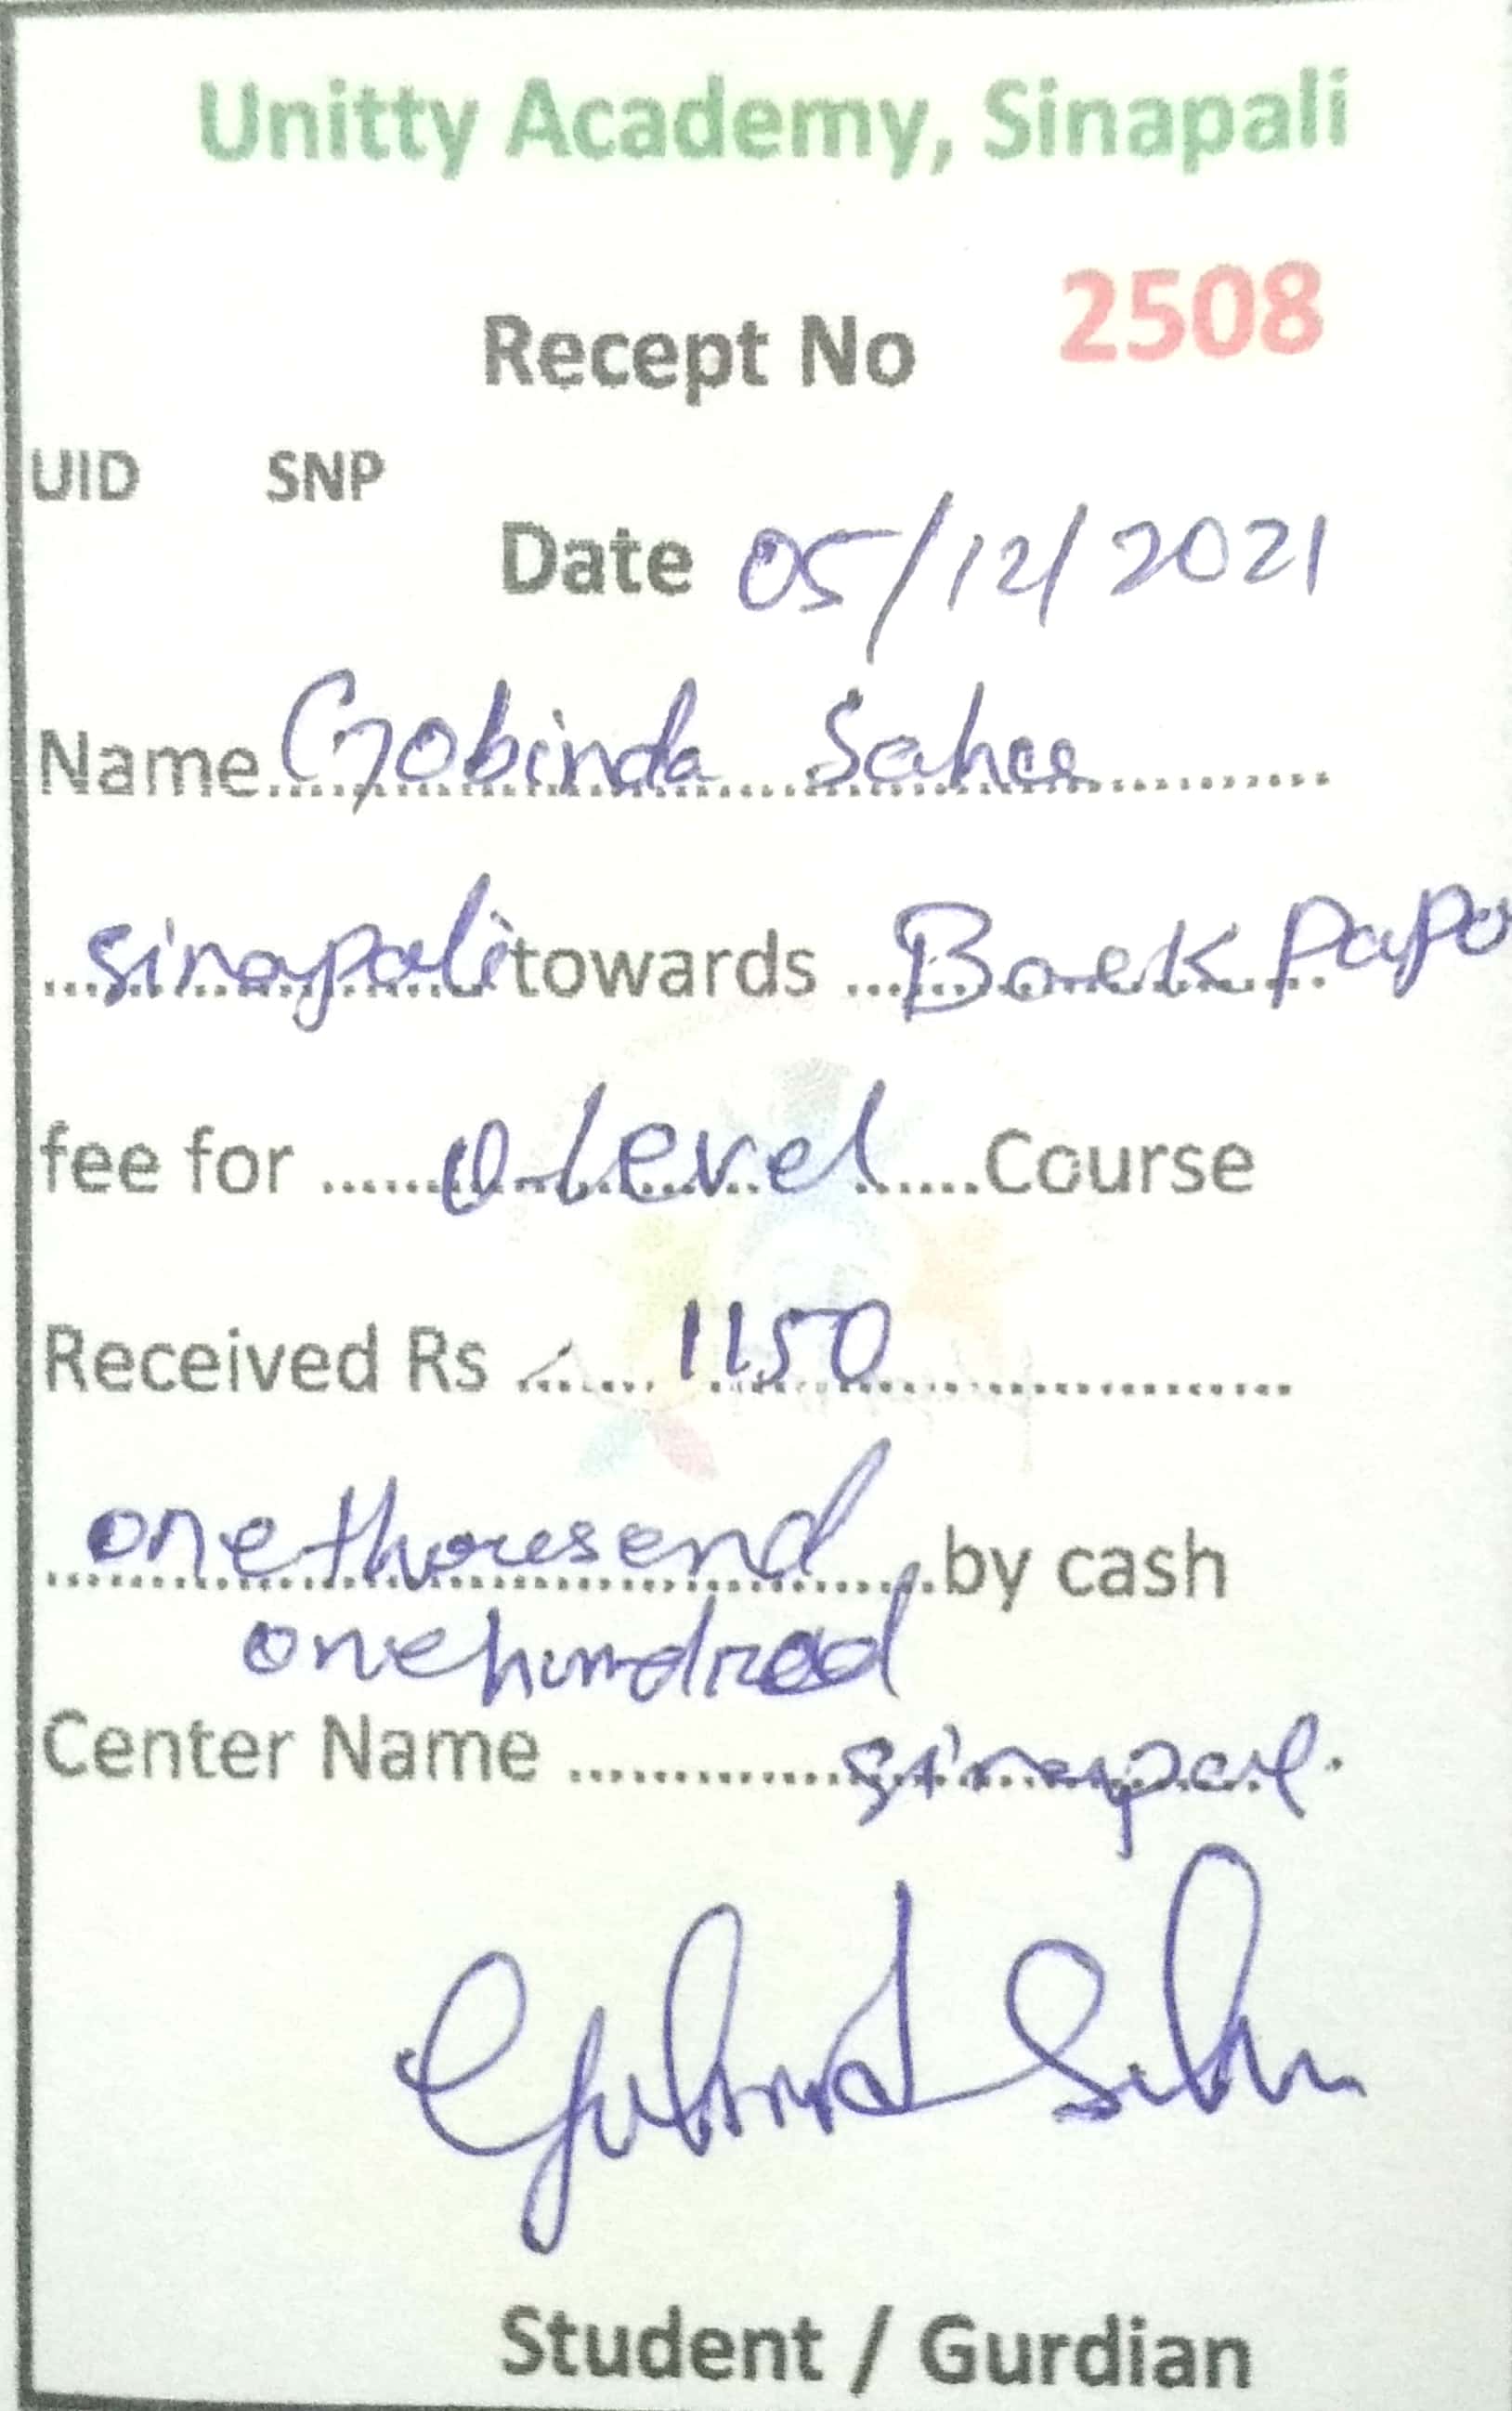 Unitty Academy, Sinapali
Recept No 2508
UID SNP
Date 05/12/2021
Name Gobinda Sahu
sinapali towards Back Pape
fee for O Level Course
Received Rs 1150
one thousend by cash
one hundred
Center Name sinapali
Student / Gurdian